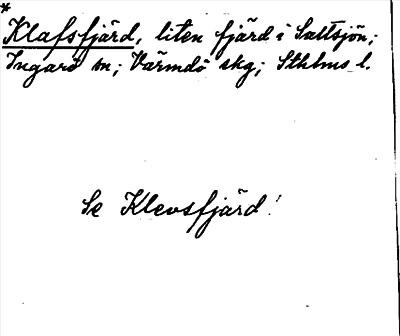 *
Klafsfjärd, liten fjärd i Saltsjön;
Ingarö sn; Värmdö skg; Sthlms l.
Se Klevsfjärd!